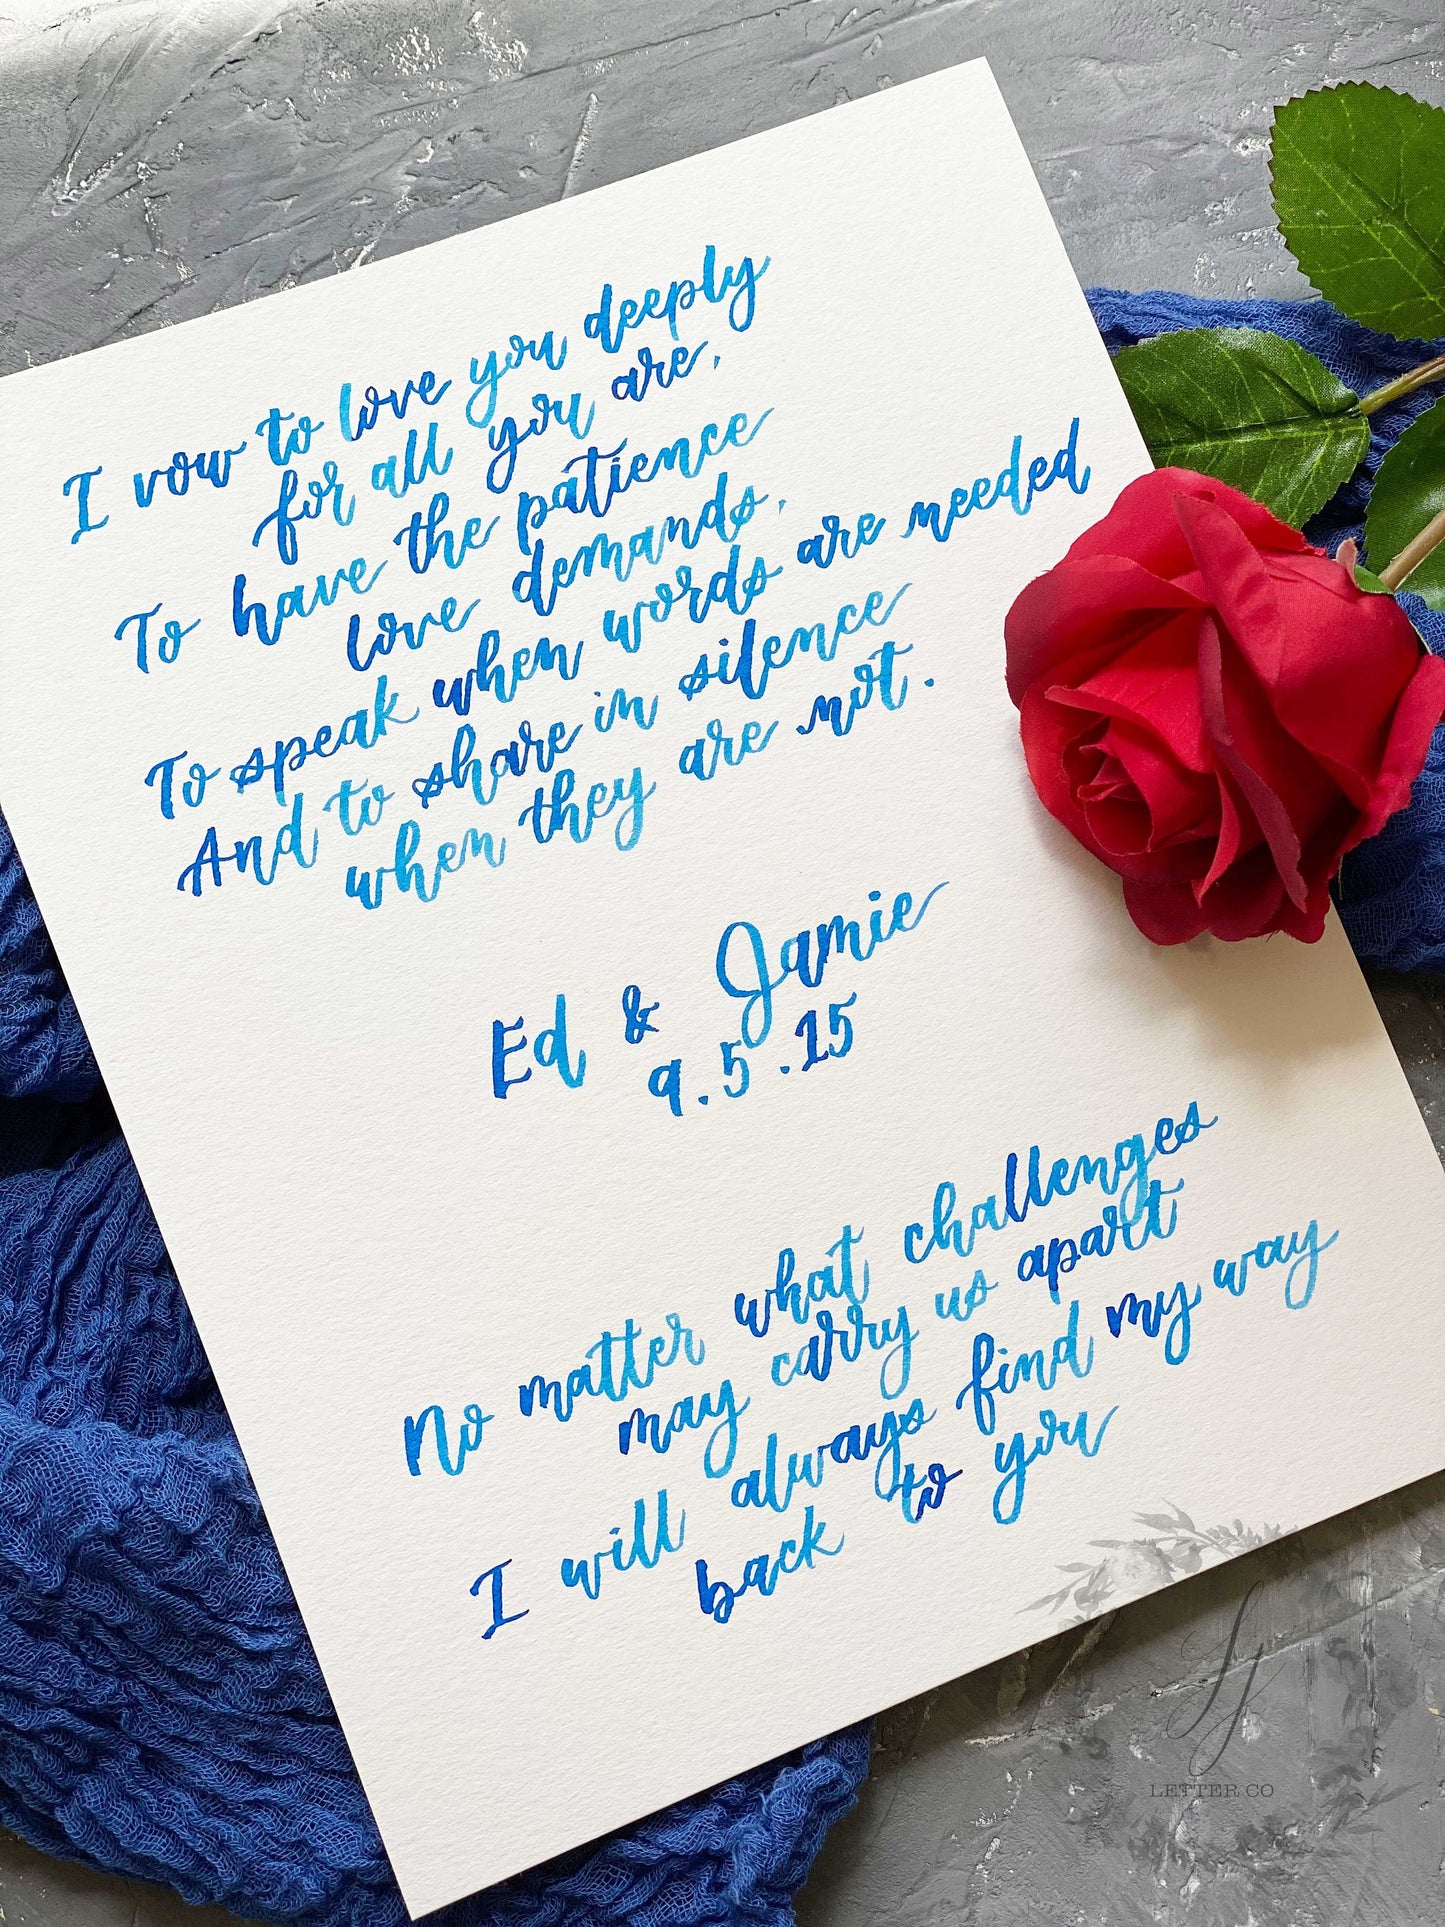 I vow to love you deeply
for all you are,
To have the patience
love demands,
To speak when words are needed
And to share in silence
when they are not.
Ed & Jamie
9.5.15
No matter what challenges
may carry us apart
I will always find my way
back to you
LETTER CO